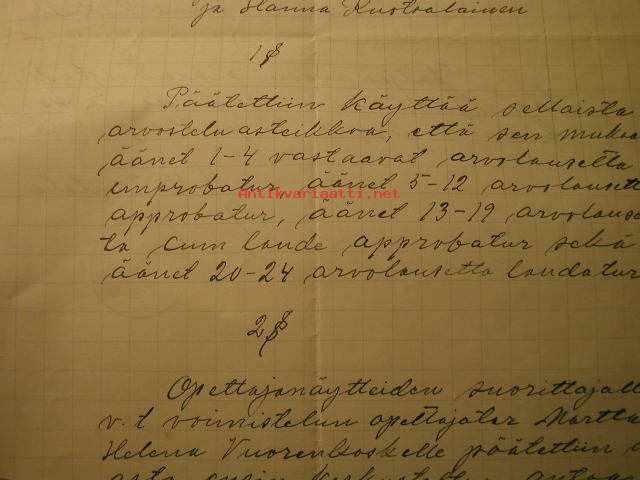 ja Hanna Kustaalainen
1 §
Päätettiin käyttää sellaista
arvosteluasteikkoa, että sen mukaa
äänet 1-4 vastaavat arvolausetta
improbatur, äänet 5-12 arvolausett
Antikvariaatti.net
approbatur, äänet 13-19 arvolause
ta cum laude approbatur sekä
äänet 20-24 arvolausetta laudatur
2 §
Opettajanäytteiden suorittajall
v.t voimistelun opettajatar Martta
Helena Vuorenkoskelle päätettiin